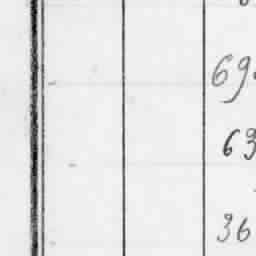 69
63
36